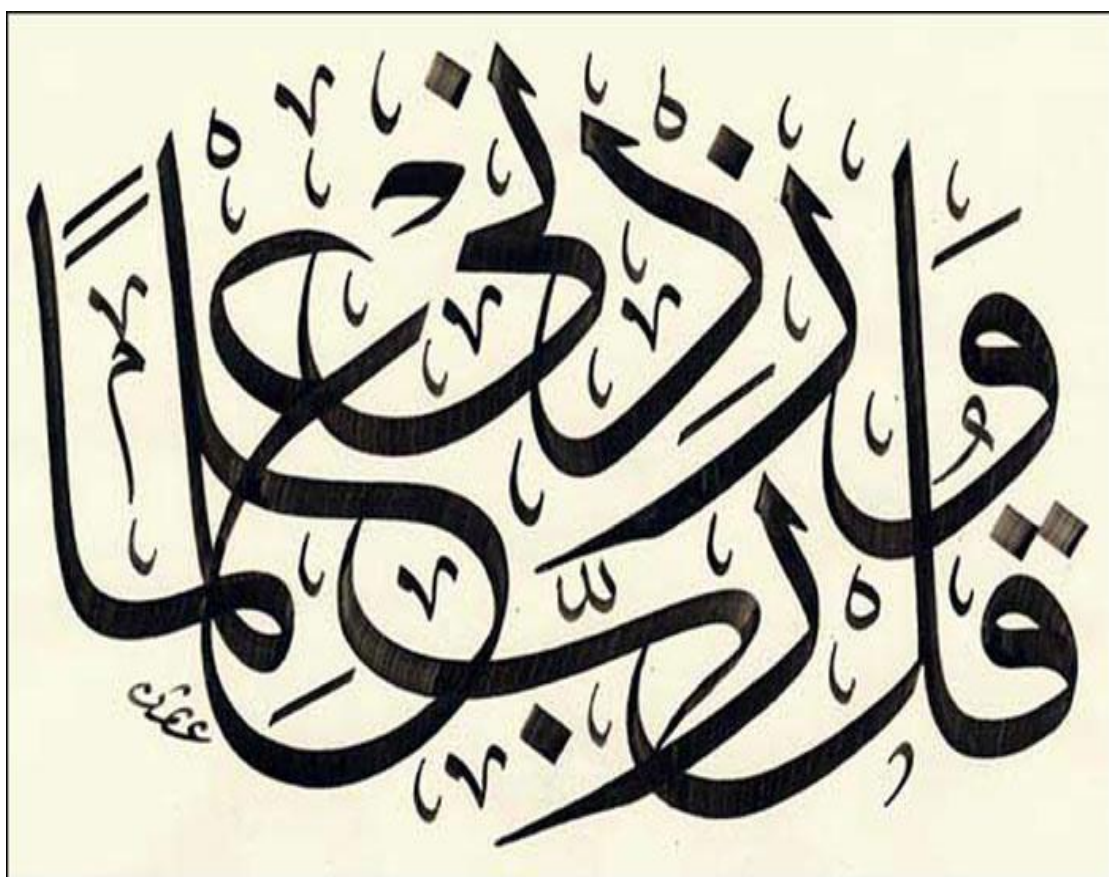 وَقُلْ رَبِّ زِدْنِي عِلْمًا